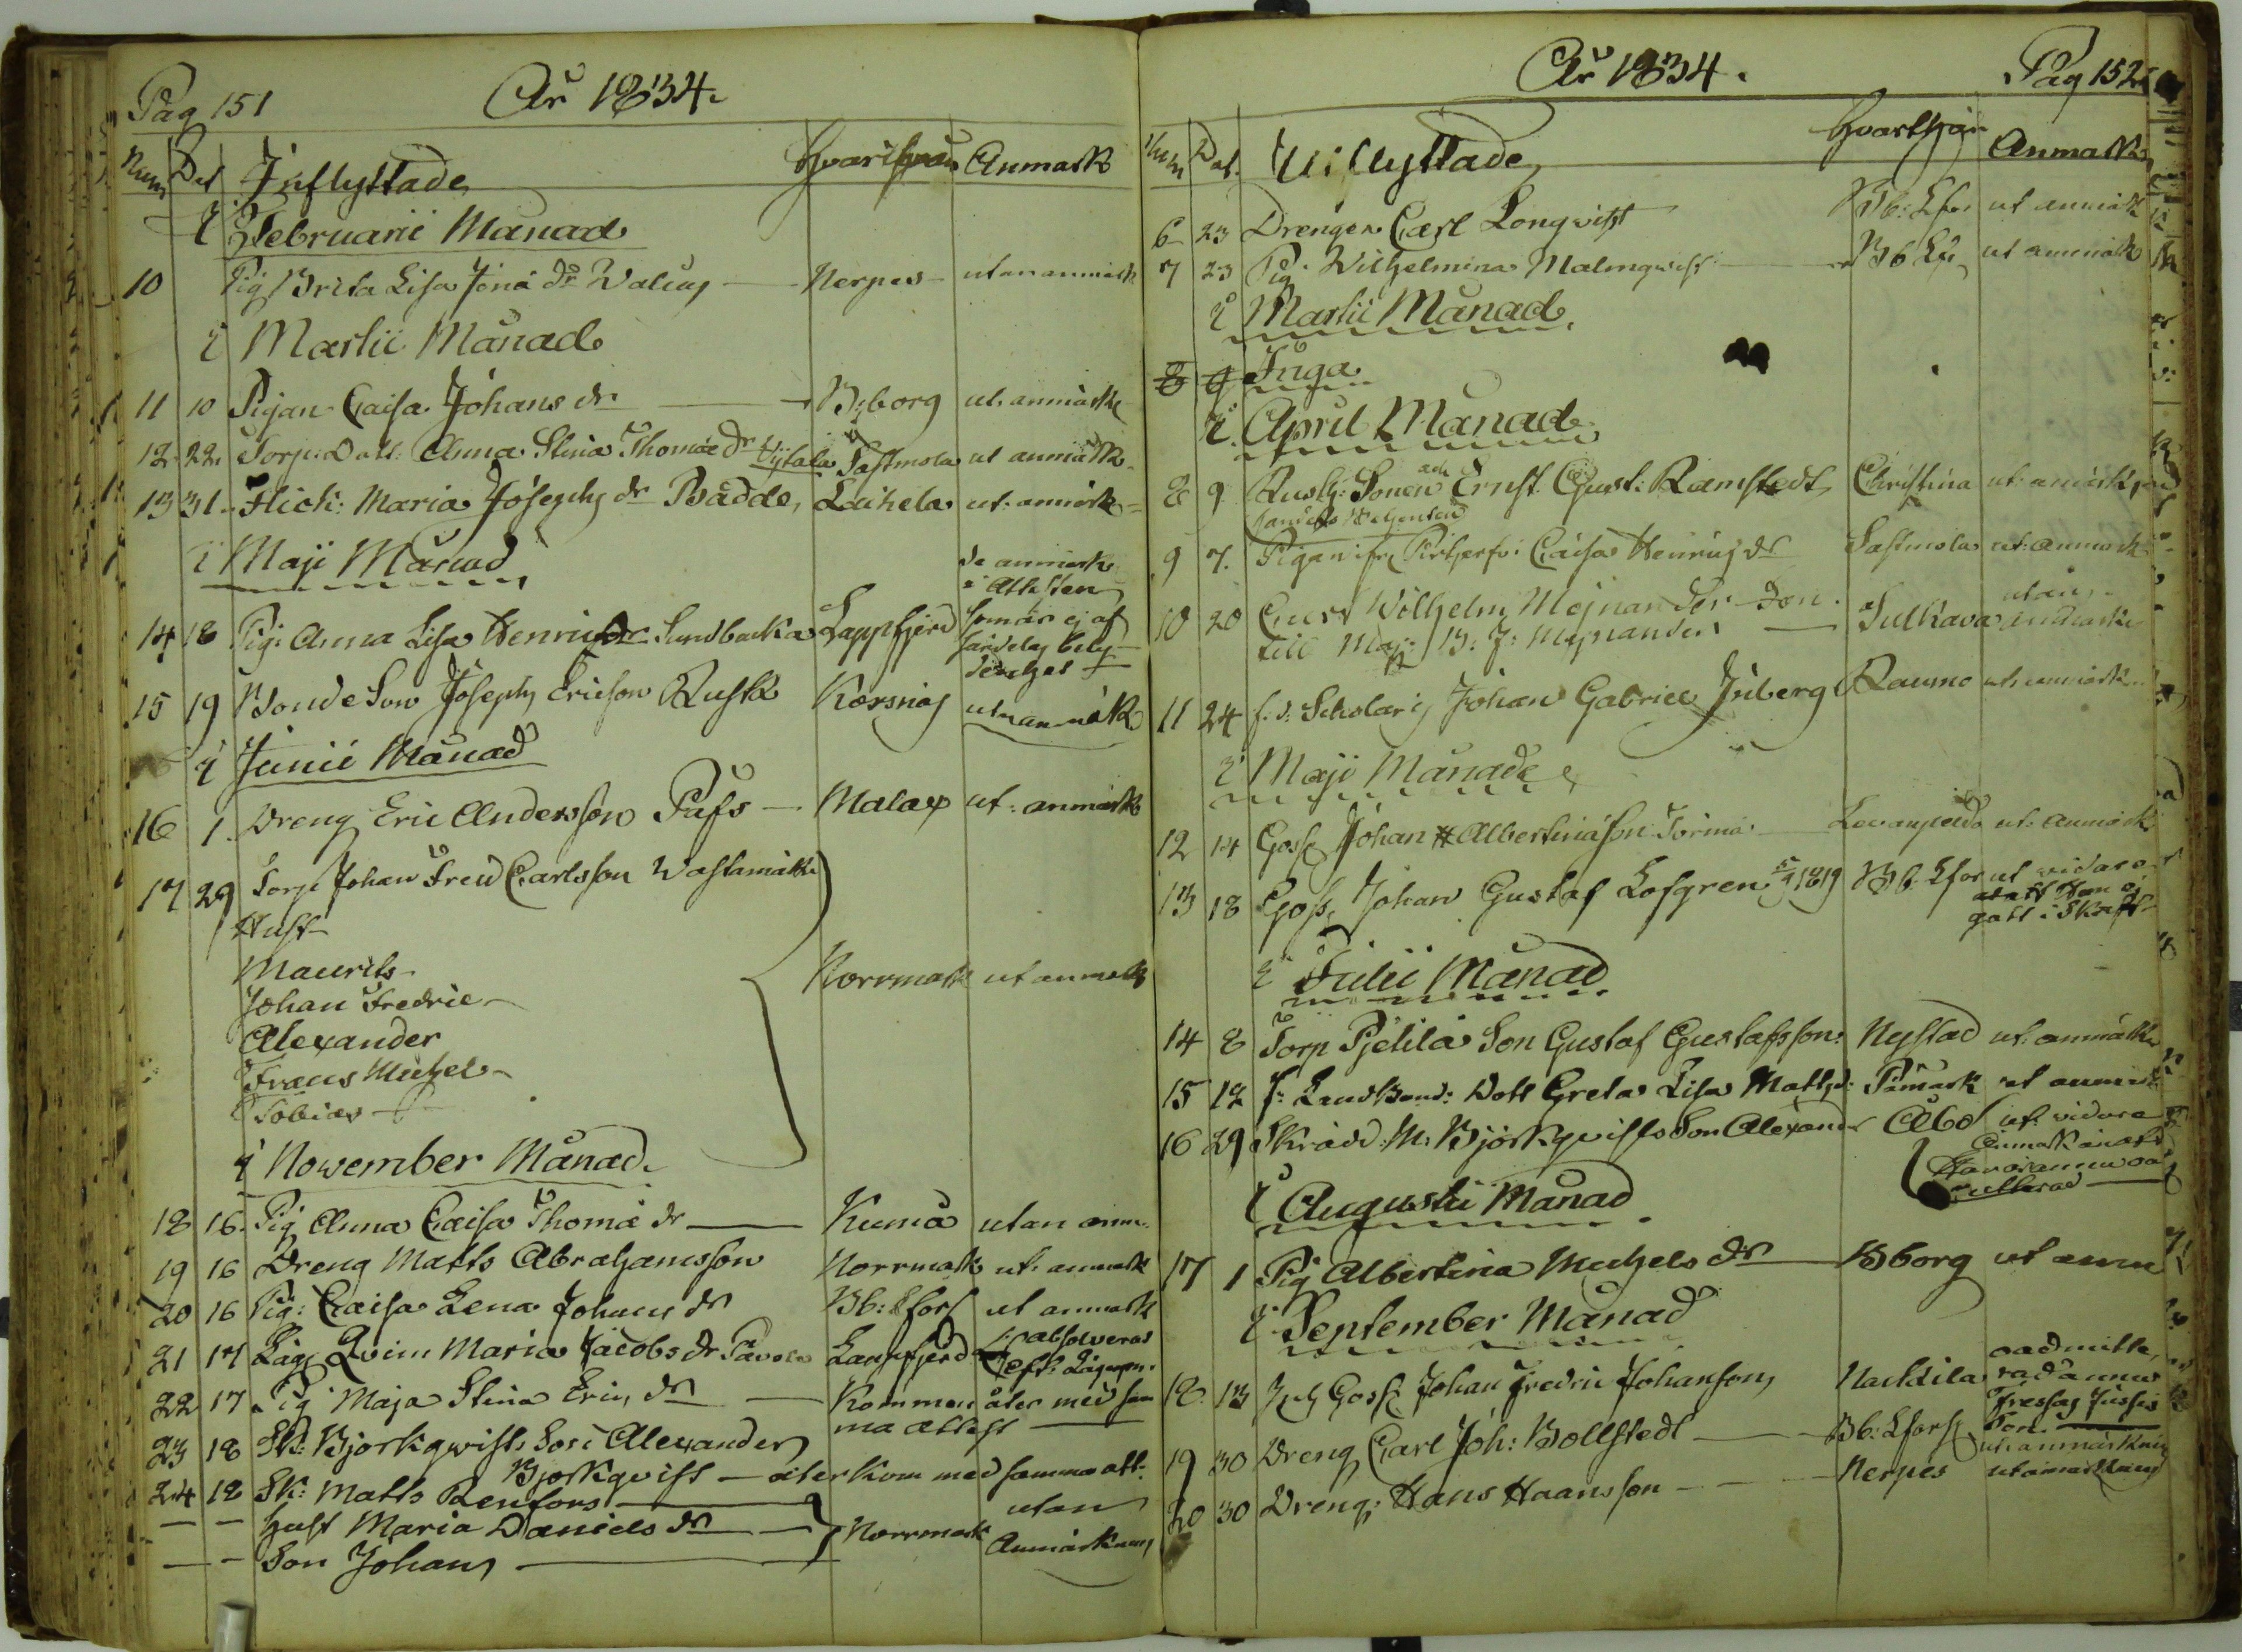 Pag 151 År 1834.
Num Dat Inflyttade Hvarifrån Anmärk
i Februarii Månad
10 Pig Brita Lisa Jona dr Nerpes utan anmärk
i Martii Månad
11 10 Pigan Caisa Johans dr Bjborg ut. anmärk
12 22 Torp. Dott: Anna Stina Thomæ dr Sastmola ut anmärk
13 31 Flick: Maria Josephs dr Bådde, Laihela ut: anmärk
i Maji Månad
14 18 Pig: Anna Lisa Henrics dr Sundbacka Lappfjerd
de anmärk
i Attesten
som är ej af
särdeles bety-
denhet
15 19 Bonde Son Joseph Ericson Rusk Korsnäs utan anmärk
i Junii Månad
16 1 Dreng Eric Andersson Pufs Malax ut: anmärk
17 29 Torp Johan Fred Carlsson Wästamäki
Hust
Maurits
Johan Fredric
Alexander
Frans Michel
Tobias
Norrmark ut anmärk
i November Månad
18 16 Pig Anna Caisa Thomæ dr Kumå utan anm.
19 16 Dreng Matts Abrahamsson Norrmark ut: anmärk
20 16 Pig: Caisa Lena Johans dr Bb: Lfors ut anmärk
21 17 Läg Qvin Maria Jacobs dr Pavola Lappfjerd absolveras
22 17 Pig Maja Stina Eric dr Kommen åter med sam
ma attest
23 18 Sk: Björkqwists Son Alexander
Björkqvist — åter kom med samma att.
24 18 Sk: Matts Renfors
— — Hust Maria Daniels dr Norrmark utan
— — Son Johan Anmärkning
År 1834. Pag 152
Num Dat. Utflyttade Hvarthän Anmärk
6 23 Drengen Carl Longvist Bb: Lfor ut anmärk
7 23 Pig Wilhelmina Malmqvist Bb Lfr ut anmärk
i Martii Månad
8 9 Inga
i April Månad
8 9 Rusth: Sonen Ernst Gust: Ramstedt Christina ut: anmärk
9 7. Pigan Caisa Henrics dr Sastmola ut: anmärk
10 20 Gust Wilhelm Mejnander Son
till Maj: B. J: Mejnander Sulkava utan anmärk
11 24 f. d. Scholaris Johan Gabriel Inberg Raumo ut. anmärk
i Maji Månad
12 14 Goss Johan Albertinason Torma ut: anmärk
13 18 Goss Johan Gustaf Lofgren 5/9 1819 Bb: Lfor ut vidare
än att Han ej
gått i Skrift
i Julii Månad
14 8 Torp Pjelila Son Gustaf Gustafsson: Nystad ut: anmärk
15 12 f: Landbond: Dott Greta Lisa Matts d: Påmark ut anmärk
16 29 Skrädd: M: Björkqvists Son Alexander Åbo ut: vidare
Anmärk än att
Han är ännu oad
mitterad
i Augusti Månad
17 1 Pig Albertina Michels dr Bborg ut anm
i September Månad
18 13 Goss Johan Fredric Johanson Nackila oadmitte,
rad ännu
19 30 Dreng Carl Joh: Bollstedt Bb: Lfors ut: anmärkning
20 30 Dreng: Hans Haansson Nerpes ut anmärkning